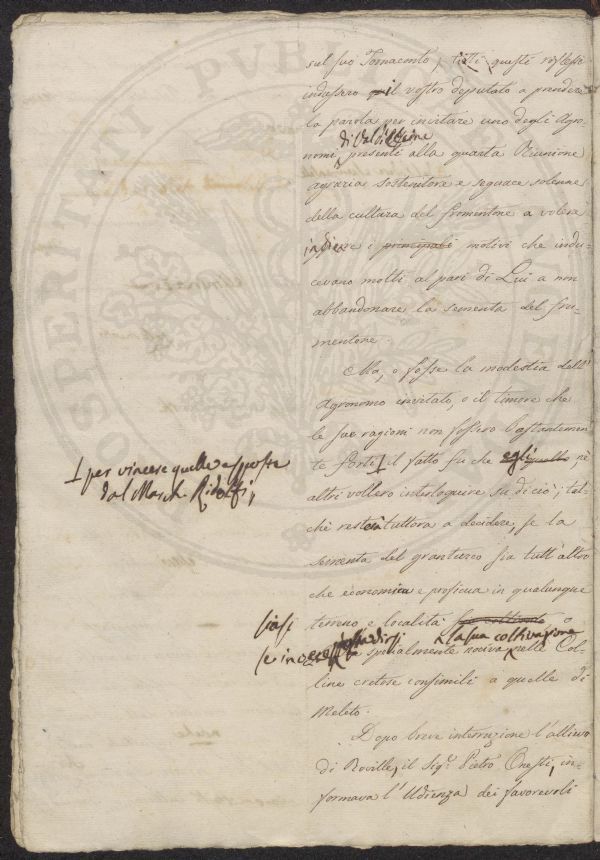 sul suo Tornaconto, tutti questi riflessi
indussero il vostro deputato a prendere
la parola per invitare uno degli Agro-
di Val d'Elsa
nomi presenti alla quarta Riunione
agraria sostenitore e seguace solenne
della cultura del fromentone a volere
i principali motivi che indu-
cevano molti al pari di Lui a non
abbandonare la sementa del fru-
mentone.
Ma, o fosse la modestia dell'
Agronomo invitato, o il timore che
le sue ragioni non fossero bastantemen-
te forti ⊥ il fatto fu che egli nè
⊥ per vincere quelle esposte
dal March. Ridolfi,
altri vollero interloquire su di ciò; tal-
chè resterà tuttora a decidere, se la
sementa del granturco sia tutt'altro
che economica e proficua in qualunque
siasi
terreno e località o
la sua coltivazione
se invece dirsi specialmente nociva nelle Col-
line cretose consimili a quelle di
Meleto.
Dopo breve interruzione l'allievo
di Roville, il Sig.r Pietro Onesti, in-
formava l'Udienza dei favorevoli